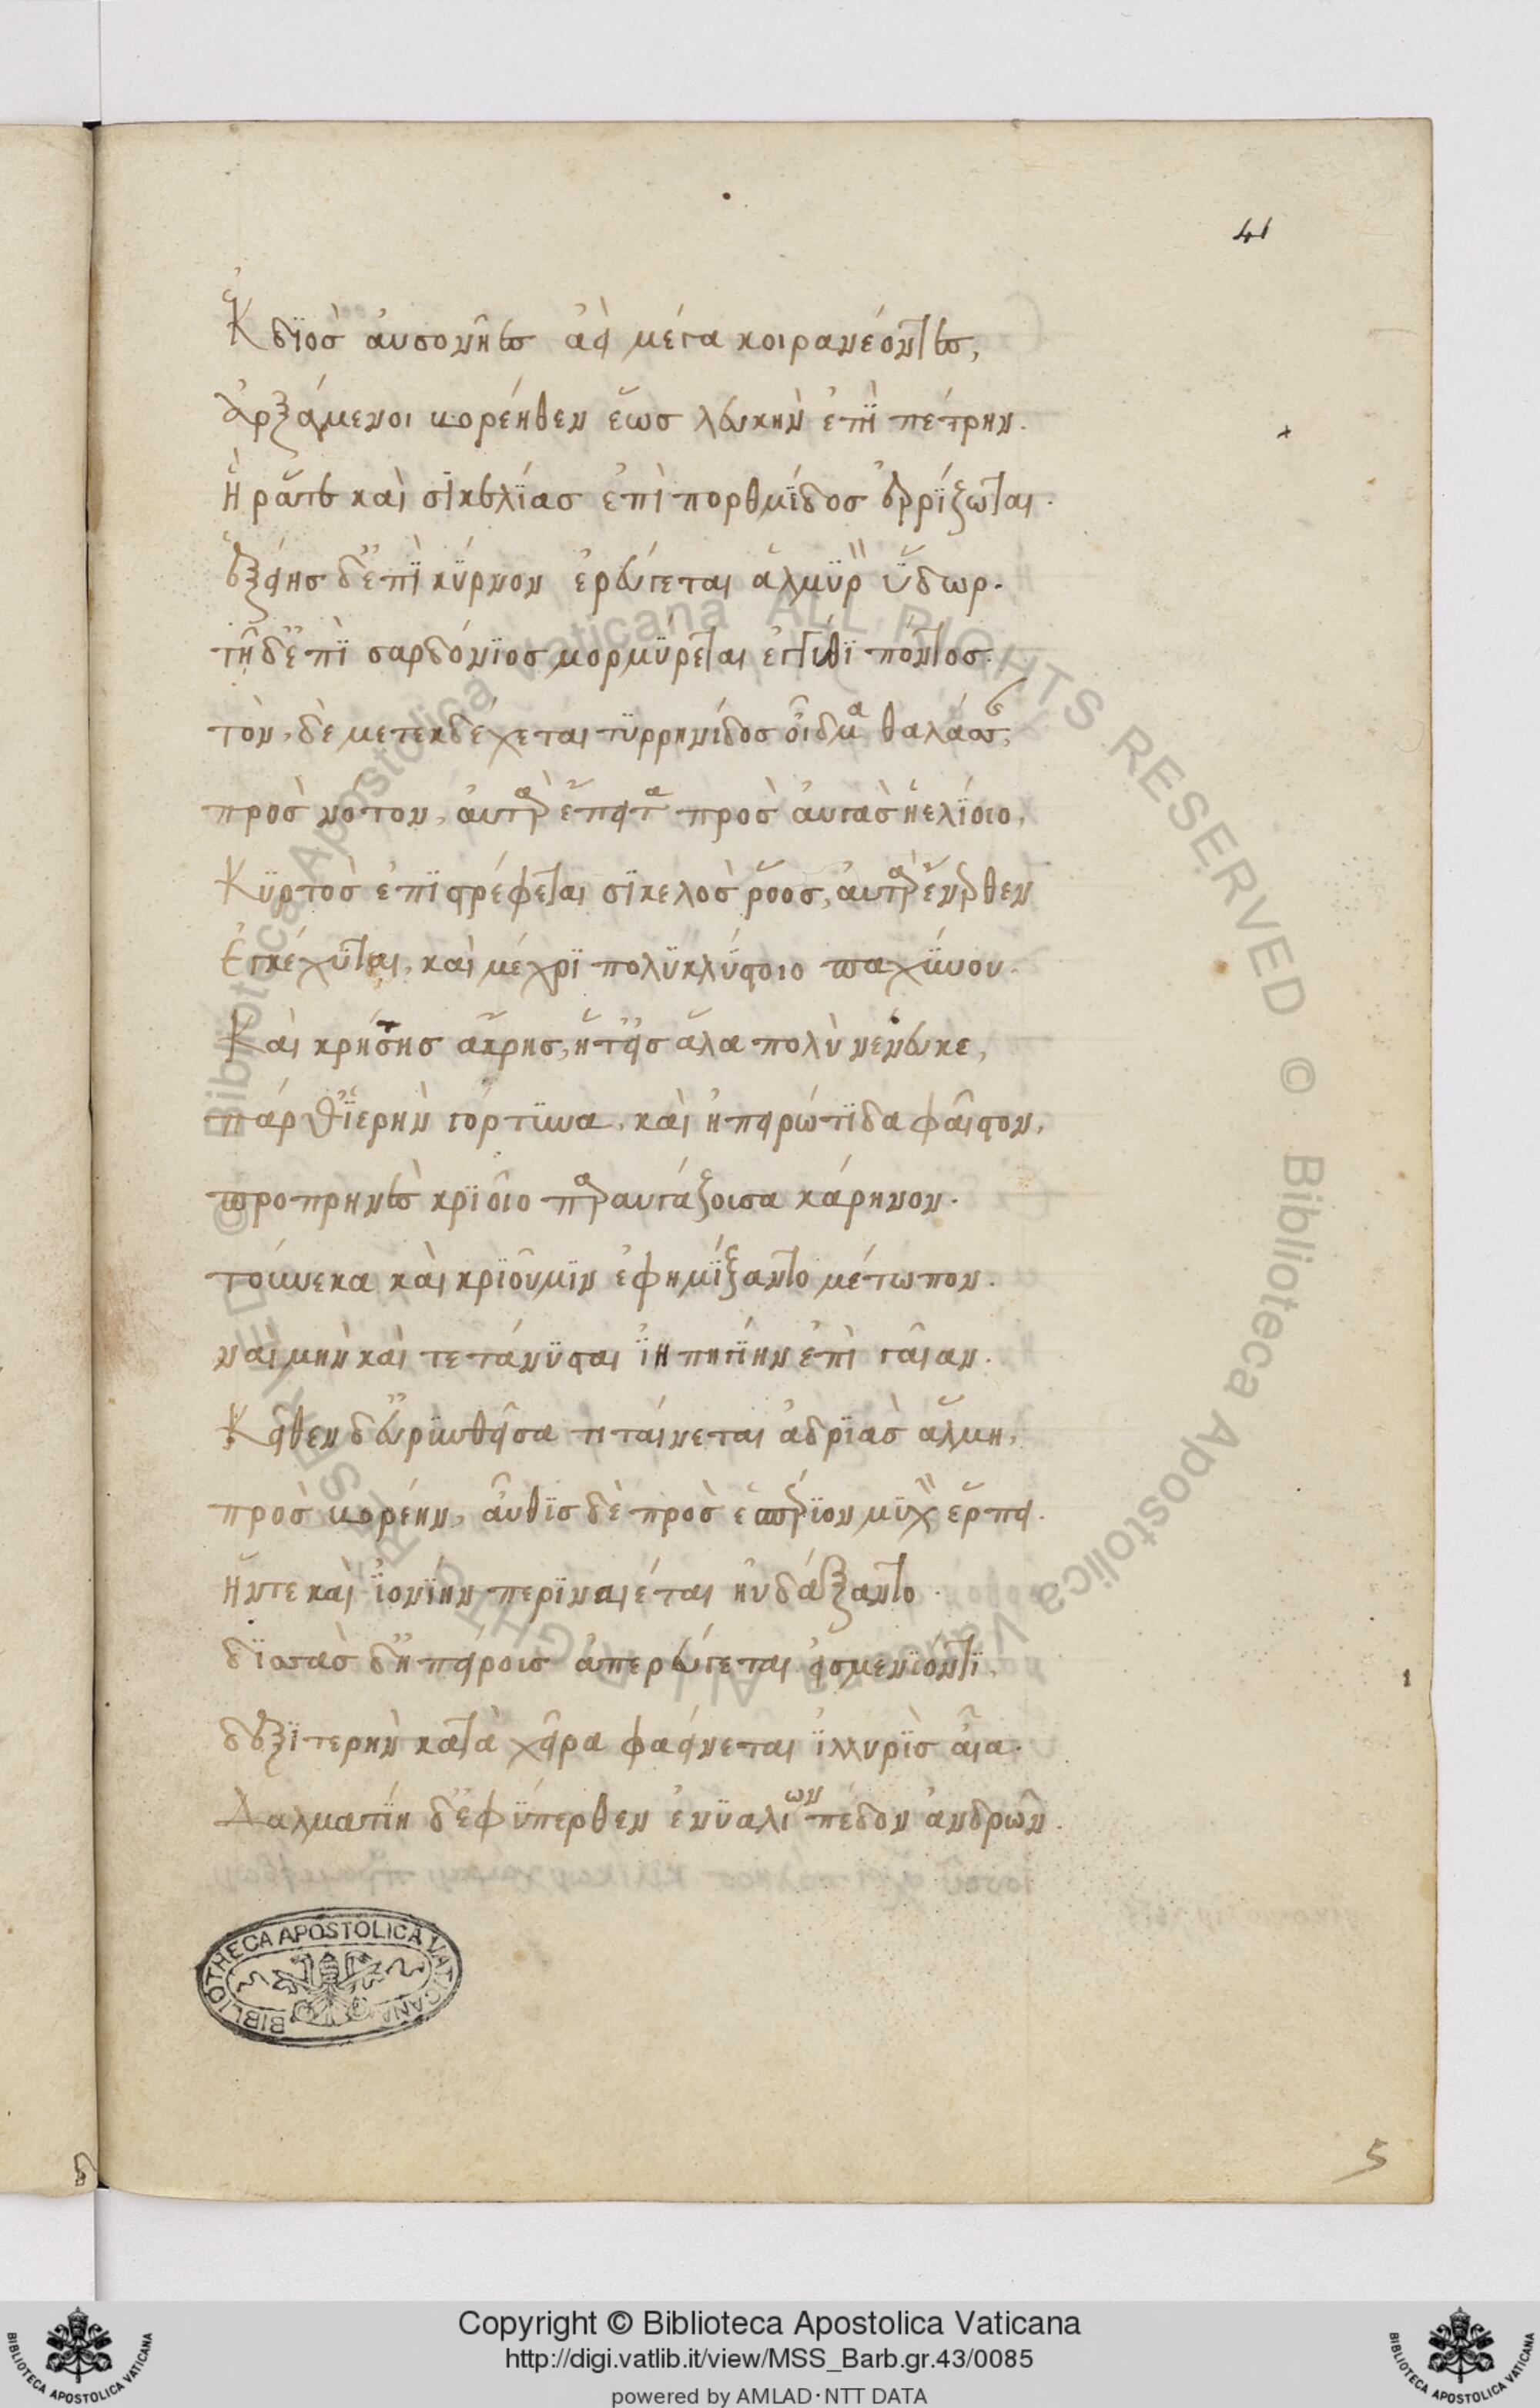 41
ἐκ διὸς ἀυσονῆες ἀεὶ μέγα κοιρανέοντες,
ἀρξάμενοι βορέηθεν ἕως λευκὴν ἐπὶ πέτρην.
ἥ ῥά τε καὶ σικελίας ἐπὶ πορθμίδος ἐρρίζωται.
ἑξείης δ' ἐπὶ κύρνον ἐρεύγεται ἁλμυρὸν ὕδωρ.
τῇ δ' ἐπὶ σαρδόνιος μορμύρεται ἔγγυθι πόντος.
τὸν δὲ μετεκδέχεται τυρρηνίδος οἶδμα θαλάσσης,
πρὸς νότον, ἀυτὰρ ἔπειτα πρὸς ἀυγὰς ἠελίοιο,
Κυρτὸς ἐπιστρέφεται σικελὸς ῥόος, ἀυτὰρ ἔνερθεν
ἐγκέχυται, καὶ μέχρι πολυκλύστοιο παχύνου.
Καὶ κρήτης ἄκρης, ἥτ' εἰς ἅλα πολὺ νένευκε,
πάρ θ' ἱερὴν γόρτυνα, καὶ ἠπειρώτιδα φαῖστον,
προπρηνὲς κριοῖο παραυγάζοισα κάρηνον.
τούνεκα καὶ κριοῦ μιν ἐφημίξαντο μέτωπον.
ναὶ μὴν καὶ τετάνυσται ἰηπυγίην ἐπὶ γαῖαν.
Κεῖθεν δ' ευρυνθεῖσα τιταίνεται ἀδριὰς ἅλμη,
πρὸς βορέην, ἀῦθις δὲ πρὸς ἑσπέριον μυχὸν ἕρπει.
ἥντε καὶ ἰονίην περιναιέται ηὐδάξαντο.
δισσὰς δ' ἠπείροις ἀπερεύγεται, εἰσμενιόντι,
δεξιτερὴν κατὰ χεῖρα φαείνεται ἰλλυρὶς αἶα.
Δαλματίη δ' ἐφύπερθεν ἐνυαλίων πέδον ἀνδρῶν.
BIBLIOTHECA APOSTOLICA VATICANA
5
Copyright © Biblioteca Apostolica Vaticana
http://digi.vatlib.it/view/MSS_Barb.gr.43/0085
powered by AMLAD·NTT DATA